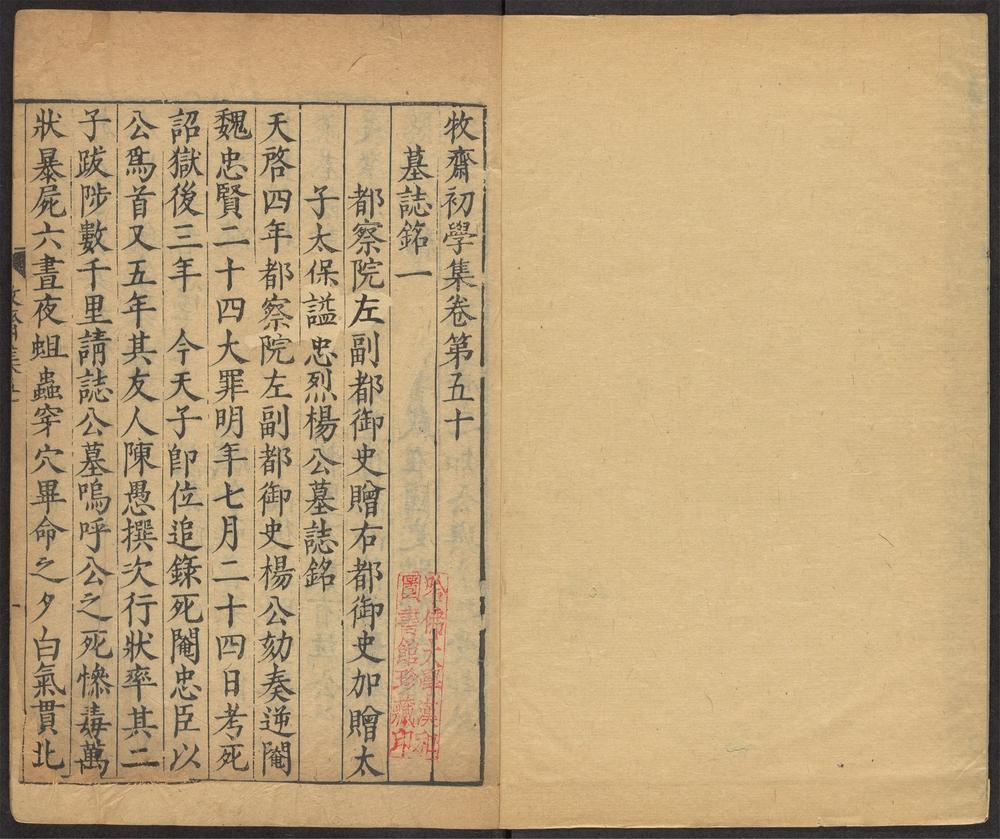 牧齋初學集卷第五十
墓誌銘一
都察院左副都御史贈右都御史加贈太
子太保謚忠烈楊公墓誌銘
天啓四年都察院左副都御史楊公劾奏逆閹
魏忠賢二十四大罪明年七月二十四日考死
詔獄後三年 今天子卽位追錄死閹忠臣以
公爲首又五年其友人陳愚撰次行狀率其二
子跋陟數千里請誌公墓嗚呼公之死慘毒萬
狀暴屍六晝夜蛆蟲穿穴畢命之夕白氣貫北
一
哈佛大學漢和
圖書館珍藏印